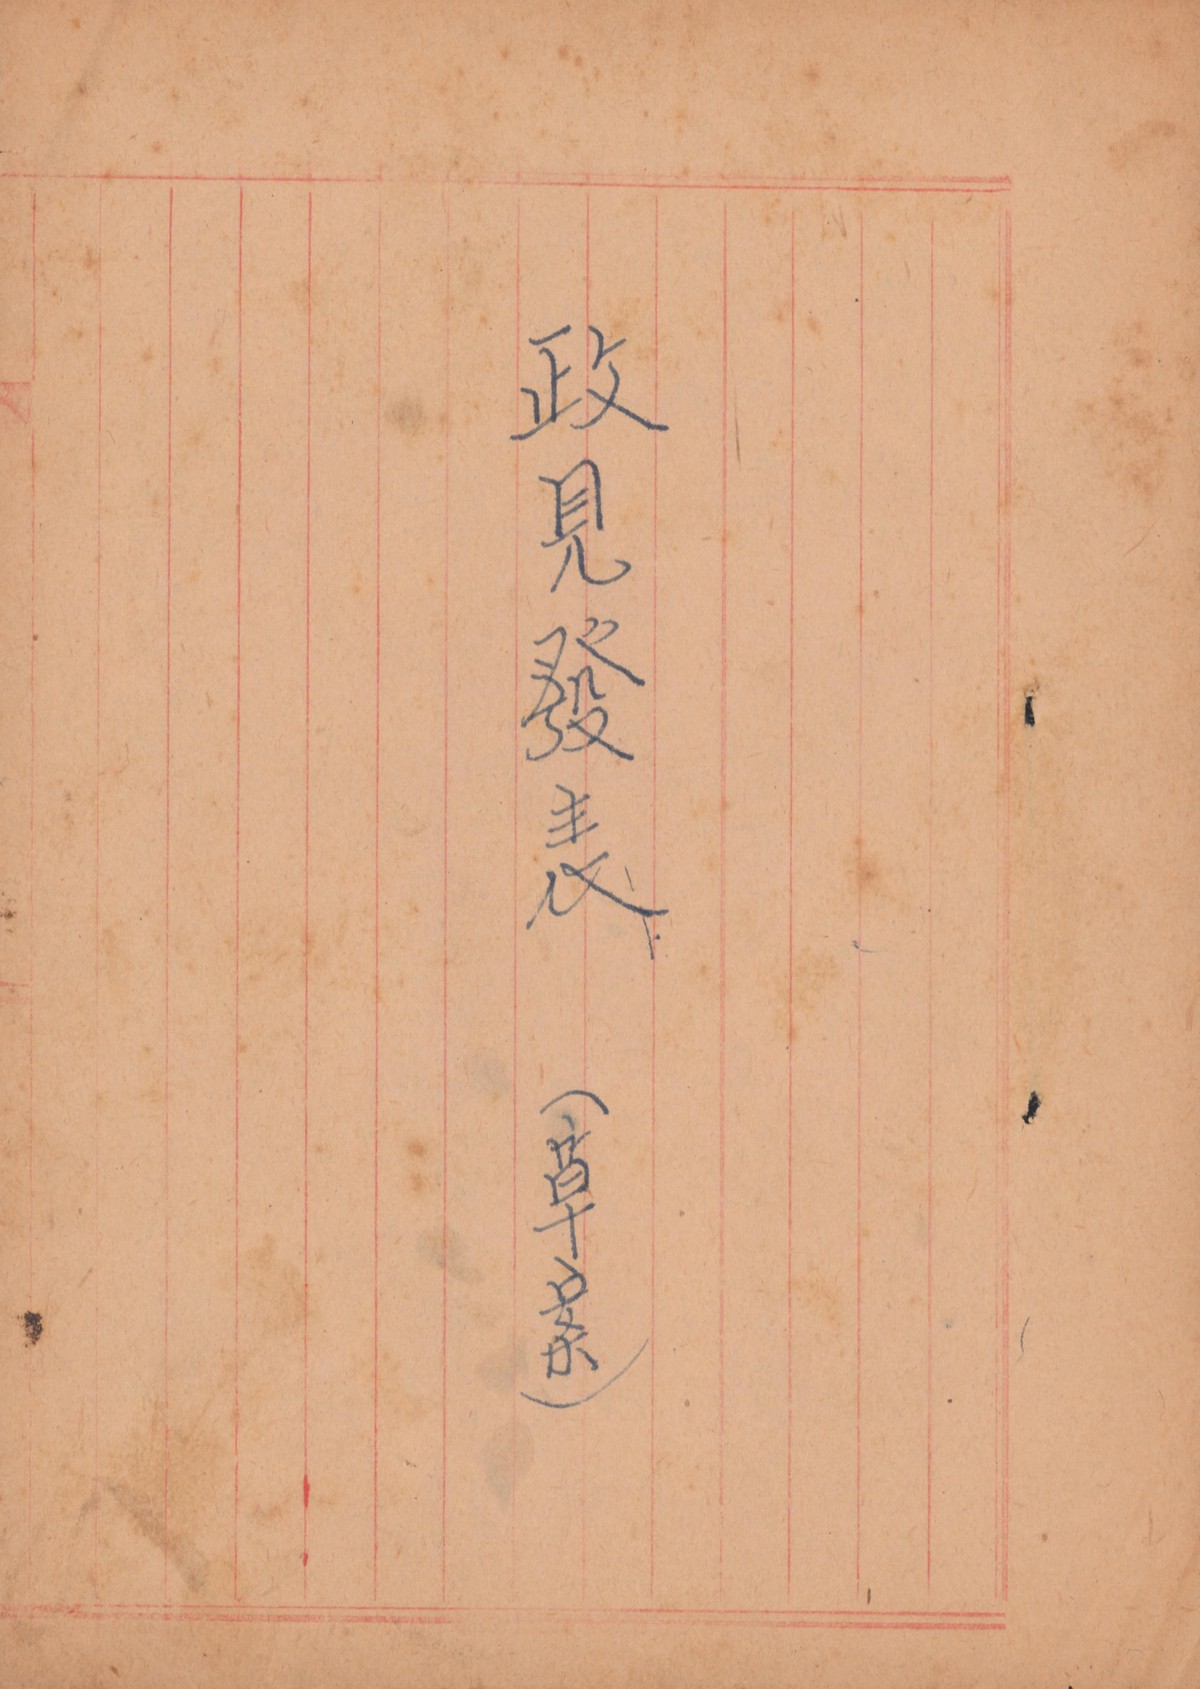 政見發表 (草案)